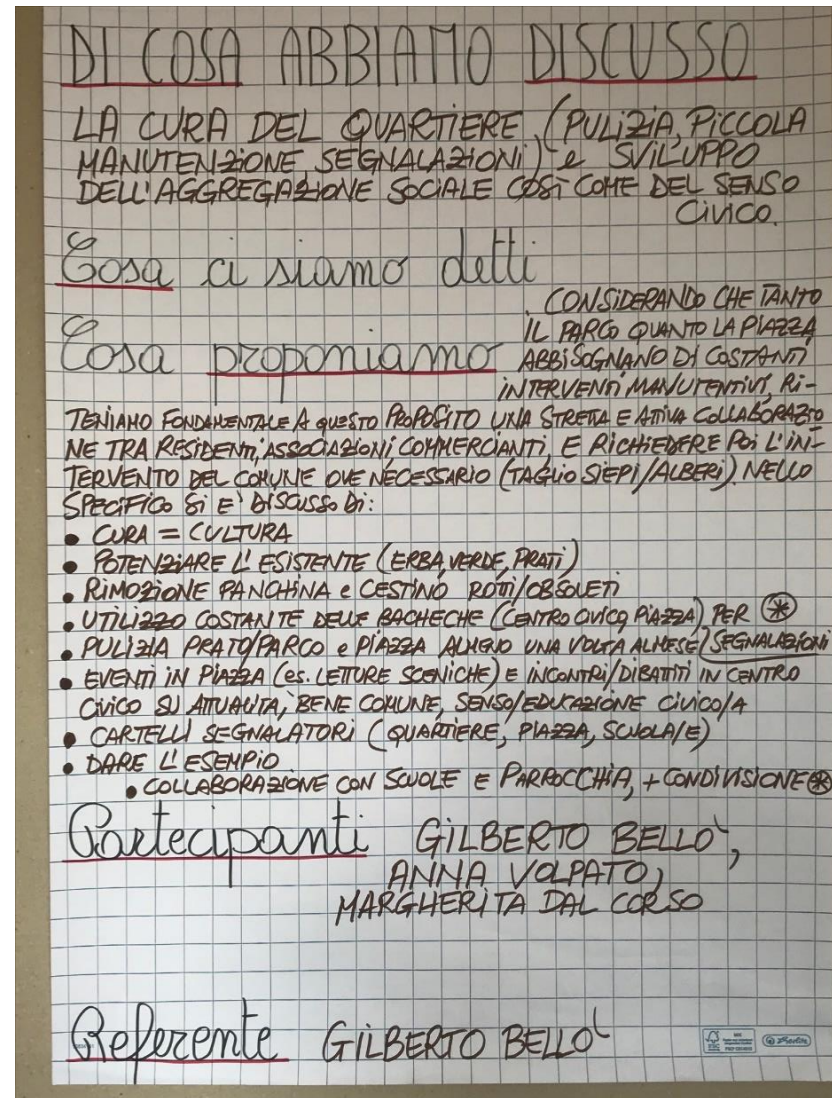 DI COSA ABBIAMO DISCUSSO
LA CURA DEL QUARTIERE (PULIZIA, PICCOLA
MANUTENZIONE, SEGNALAZIONI) e SVILUPPO
DELL'AGGREGAZIONE SOCIALE COSÌ COME DEL SENSO
CIVICO.
Cosa ci siamo detti
Cosa proponiamo
CONSIDERANDO CHE TANTO
IL PARCO QUANTO LA PIAZZA
ABBISOGNANO DI COSTANTI
INTERVENTI MANUTENTIVI, RI-
TENIAMO FONDAMENTALE A QUESTO PROPOSITO UNA STRETTA E ATTIVA COLLABORAZIO
NE TRA RESIDENTI, ASSOCIAZIONI, COMMERCIANTI, E RICHIEDERE POI L'IN-
TERVENTO DEL COMUNE OVE NECESSARIO (TAGLIO SIEPI/ALBERI). NELLO
SPECIFICO SI E' DISCUSSO DI:
• CURA = CULTURA
• POTENZIARE L'ESISTENTE (ERBA, VERDE, PRATI)
• RIMOZIONE PANCHINA e CESTINO ROTTI/OBSOLETI
• UTILIZZO COSTANTE DELLE BACHECHE (CENTRO CIVICO, PIAZZA) PER ⊛
• PULIZIA PRATO/PARCO e PIAZZA ALMENO UNA VOLTA AL MESE/SEGNALAZIONI
• EVENTI IN PIAZZA (es. LETTURE SCENICHE) E INCONTRI/DIBATTITI IN CENTRO
CIVICO SU ATTUALITA', BENE COMUNE, SENSO/EDUCAZIONE CIVICO/A
• CARTELLI SEGNALATORI (QUARTIERE, PIAZZA, SCUOLA/E)
• DARE L'ESEMPIO
• COLLABORAZIONE CON SCUOLE E PARROCCHIA, + CONDIVISIONE ⊛
Partecipanti GILBERTO BELLO',
ANNA VOLPATO,
MARGHERITA DAL CORSO
Referente GILBERTO BELLO'
FSC